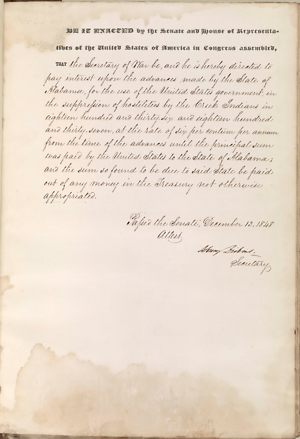 BE IT ENACTED by the Senate and House of Representa-
tives of the United States of America in Congress assembled,
THAT the Secretary of War be, and he is hereby directed to
pay interest upon the advances made by the State of
Alabama, for the use of the United States government, in
the suppression of hostilities by the Creek Indians in
eighteen hundred and thirty six and eighteen hundred
and thirty seven, at the rate of six per centum per annum
from the time of the advances until the principal sum
was paid by the United States to the State of Alabama;
and the sum so found to be due to said State be paid
out of any money in the Treasury not otherwise
appropriated.
Passed the Senate, December 13, 1848
Attest,
Secretary